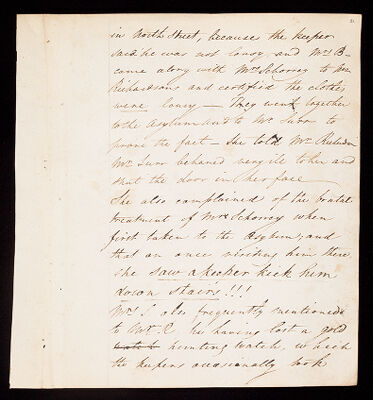 in North Street, because the keeper
said he was not lousy, and Mrs B-
came along with Mrs Schorey to Mr
Richardsons and certified the clothes
were lousy — They went together
to the Asylum and to Mr Surr to
prove the fact — She told Mr Richardson
Mr Surr behaved very ill to her and
shut the door in her face
She also complained of the brutal
treatment of Mr Schorey when
first taken to the Asylum, and
that on once visiting him there
she saw a keeper kick him
down stairs!!!
Mrs S also frequently mentioned
to Wm R his having lost a gold
hunting watch, which
the keepers occasionally took